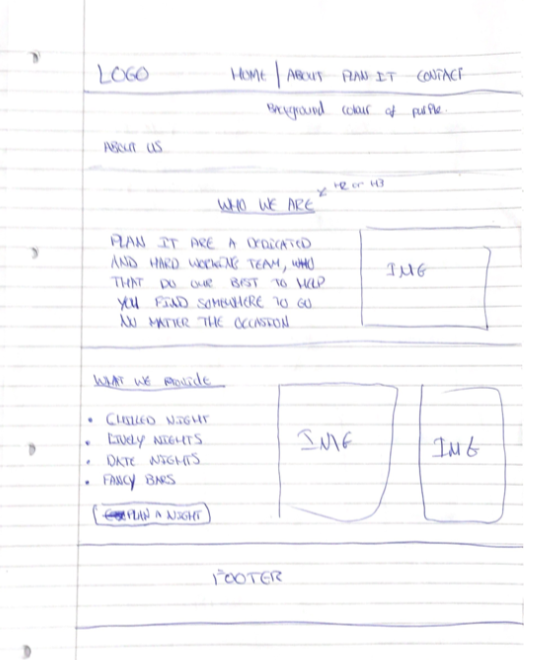 LOGO HOME | ABOUT PLAN IT CONTACT
Background colour of purple.
ABOUT US
WHO WE ARE
H2 or H3
PLAN IT ARE A DEDICATED
AND HARD WORKING TEAM,
THAT DO OUR BEST TO HELP
YOU FIND SOMEWHERE TO GO
NO MATTER THE OCCASION
IMG
WHAT WE PROVIDE
• CHILLED NIGHT
• LIVELY NIGHTS
• DATE NIGHTS
• FANCY BARS
PLAN A NIGHT
IMG
IMG
FOOTER